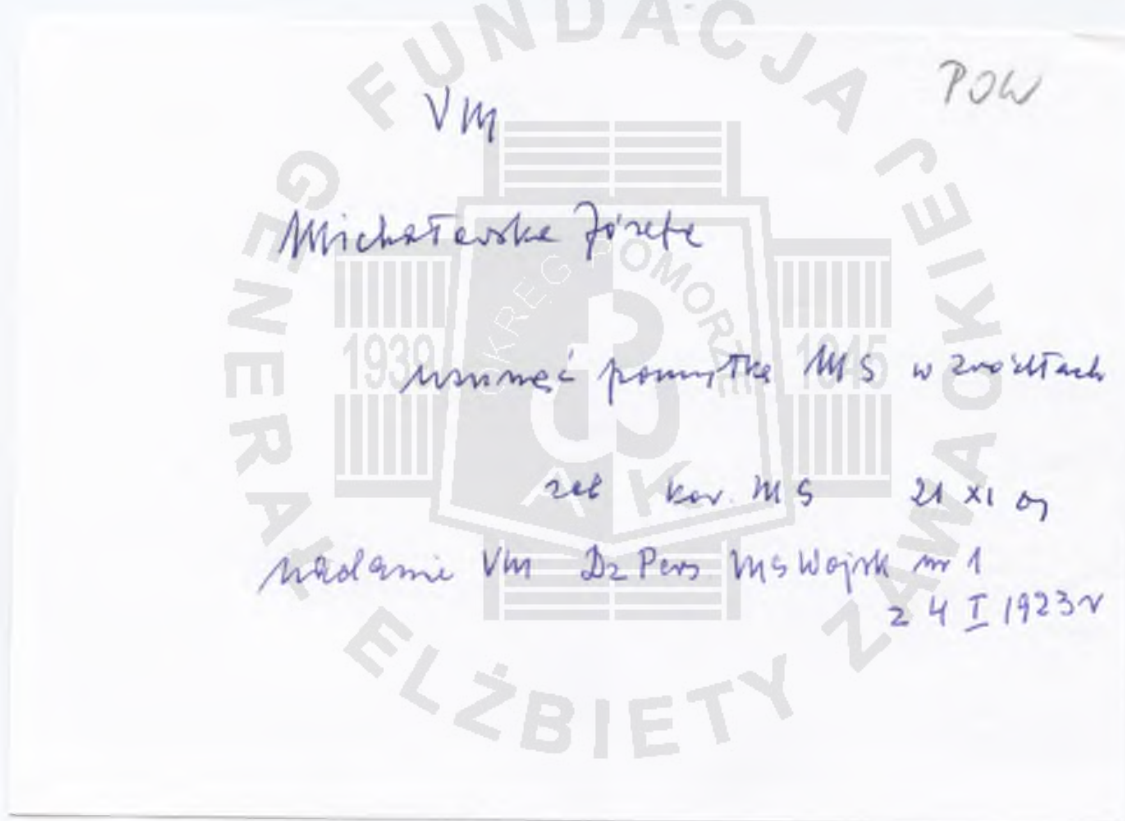 POW
VM
Michałowska Józefa
usunąć pomyłkę MS w źródłach
zob kor. MS 21 XI 09
nadanie VM Dz Pers MSWojsk nr 1
z 4 I 1923 r
FUNDACJA GENERAŁ ELŻBIETY ZAWACKIEJ
OKRĘG POMORZE
1939 1945
AK